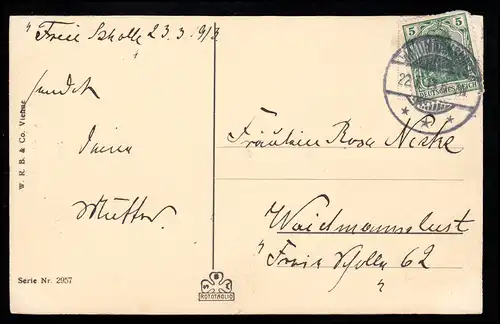 „Freie Scholle 23.3.913
"
sendet
Deine
Mutter.
Fräulein Rosa
Waidmannslust
„Freie Scholle 62
"
W. R. B. & Co. Vienne
Serie Nr. 2957
S B M
ROTOTAGLIO
5 5
DEUTSCHES REICH
22.
* * *